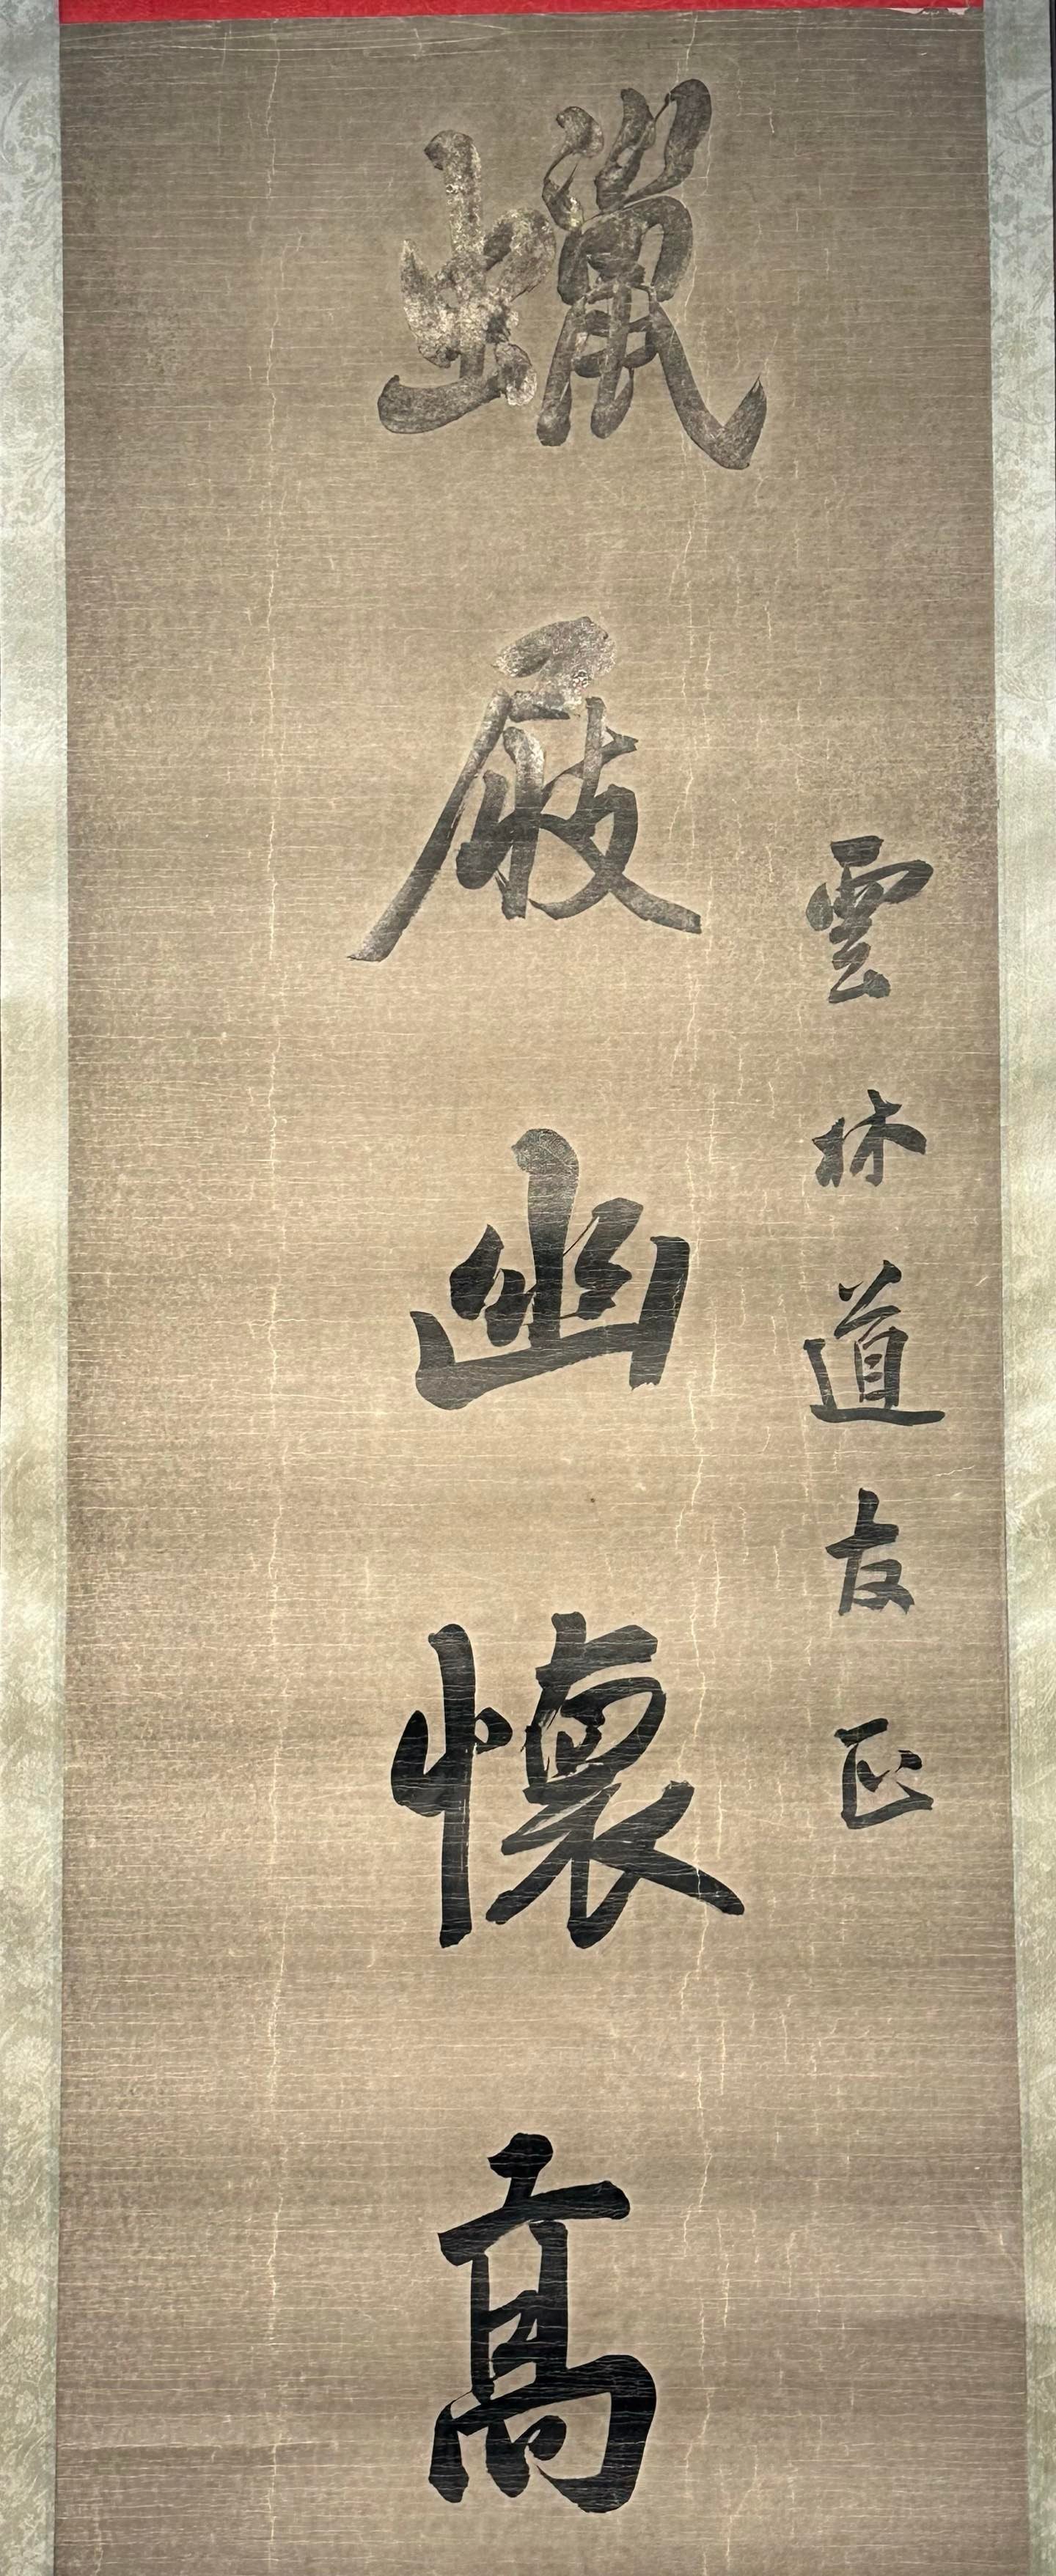 雲林道友正
蠟屐幽懷高